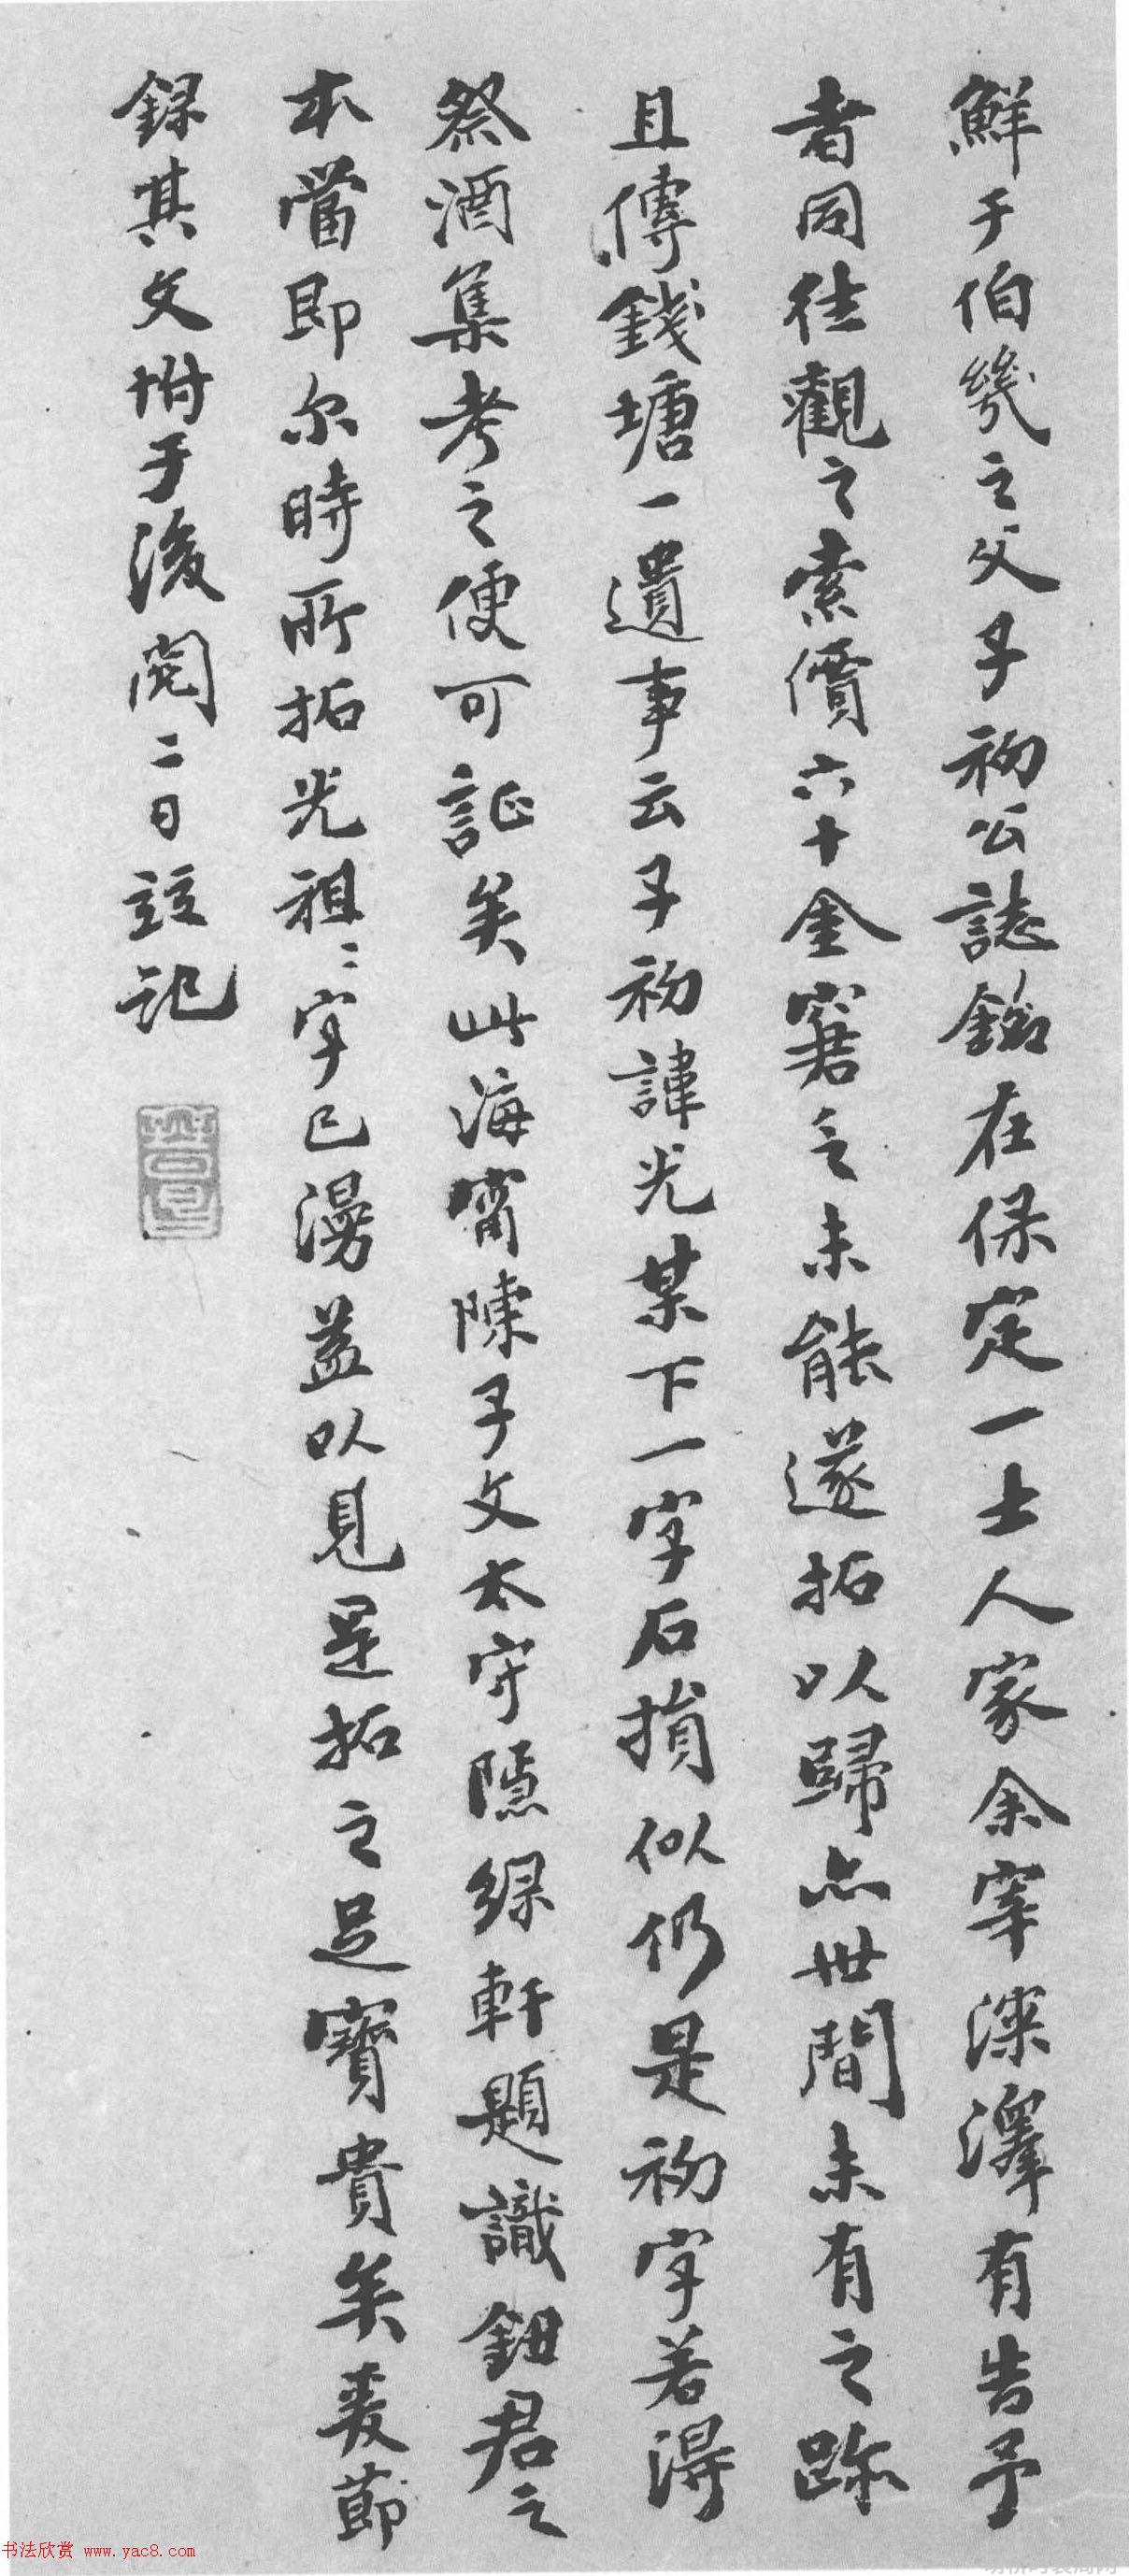 鮮于伯幾之父子初公誌銘在保定一士人家余宰深澤有告予
者同往觀之索價六十金窘之未能遂拓以歸亦世間未有之跡
且傳錢塘一遺事云子初諱光某下一字石損似仍是初字若得
祭酒集考之便可証矣此海甯陳子文太守隱綠軒題識鈕君之
本當即尔時所拓光祖二字已漫益以見是拓之足寶貴矣爰節
錄其文坿于後閱二日竝記
书法欣赏 www.yac8.com